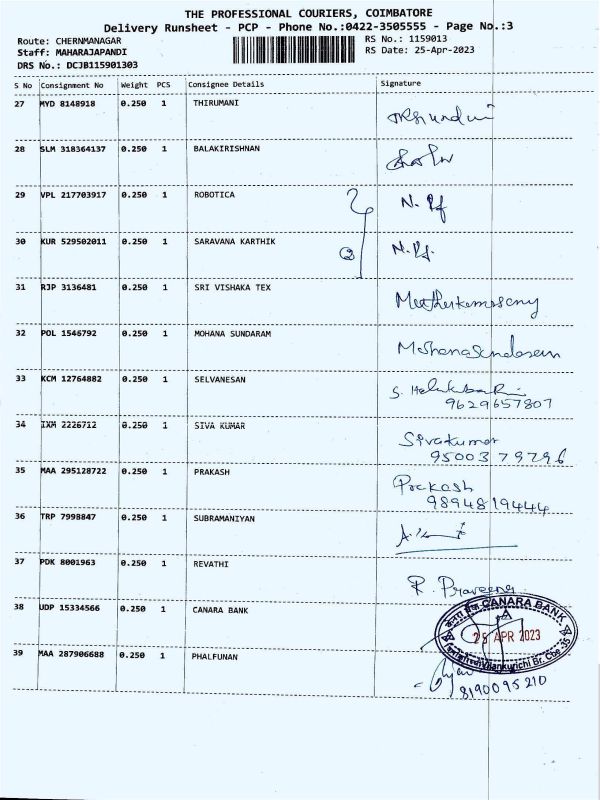 THE PROFESSIONAL COURIERS, COIMBATORE
Delivery Runsheet - PCP - Phone No.:0422-3505555 - Page No.:3
Route: CHERNMANAGAR
RS No.: 1159013
Staff: MAHARAJAPANDI
RS Date: 25-Apr-2023
DRS No.: DCJB115901303
S No Consignment No Weight PCS Consignee Details Signature
27 MYD 8148918 0.250 1 THIRUMANI
28 SLM 318364137 0.250 1 BALAKIRISHNAN
29 VPL 217703917 0.250 1 ROBOTICA
30 KUR 529502011 0.250 1 SARAVANA KARTHIK
31 RJP 3136481 0.250 1 SRI VISHAKA TEX
32 POL 1546792 0.250 1 MOHANA SUNDARAM
33 KCM 12764882 0.250 1 SELVANESAN
9629657807
34 IXM 2226712 0.250 1 SIVA KUMAR Sivakumar
9500379796
35 MAA 295128722 0.250 1 PRAKASH Prakash
9894819444
36 TRP 7998847 0.250 1 SUBRAMANIYAN
37 PDK 8001963 0.250 1 REVATHI R. Praveena
38 UDP 15334566 0.250 1 CANARA BANK
CANARA BANK
25 APR 2023
Vilankurichi Br. Cbe-35
39 MAA 287906688 0.250 1 PHALFUNAN
8190095210